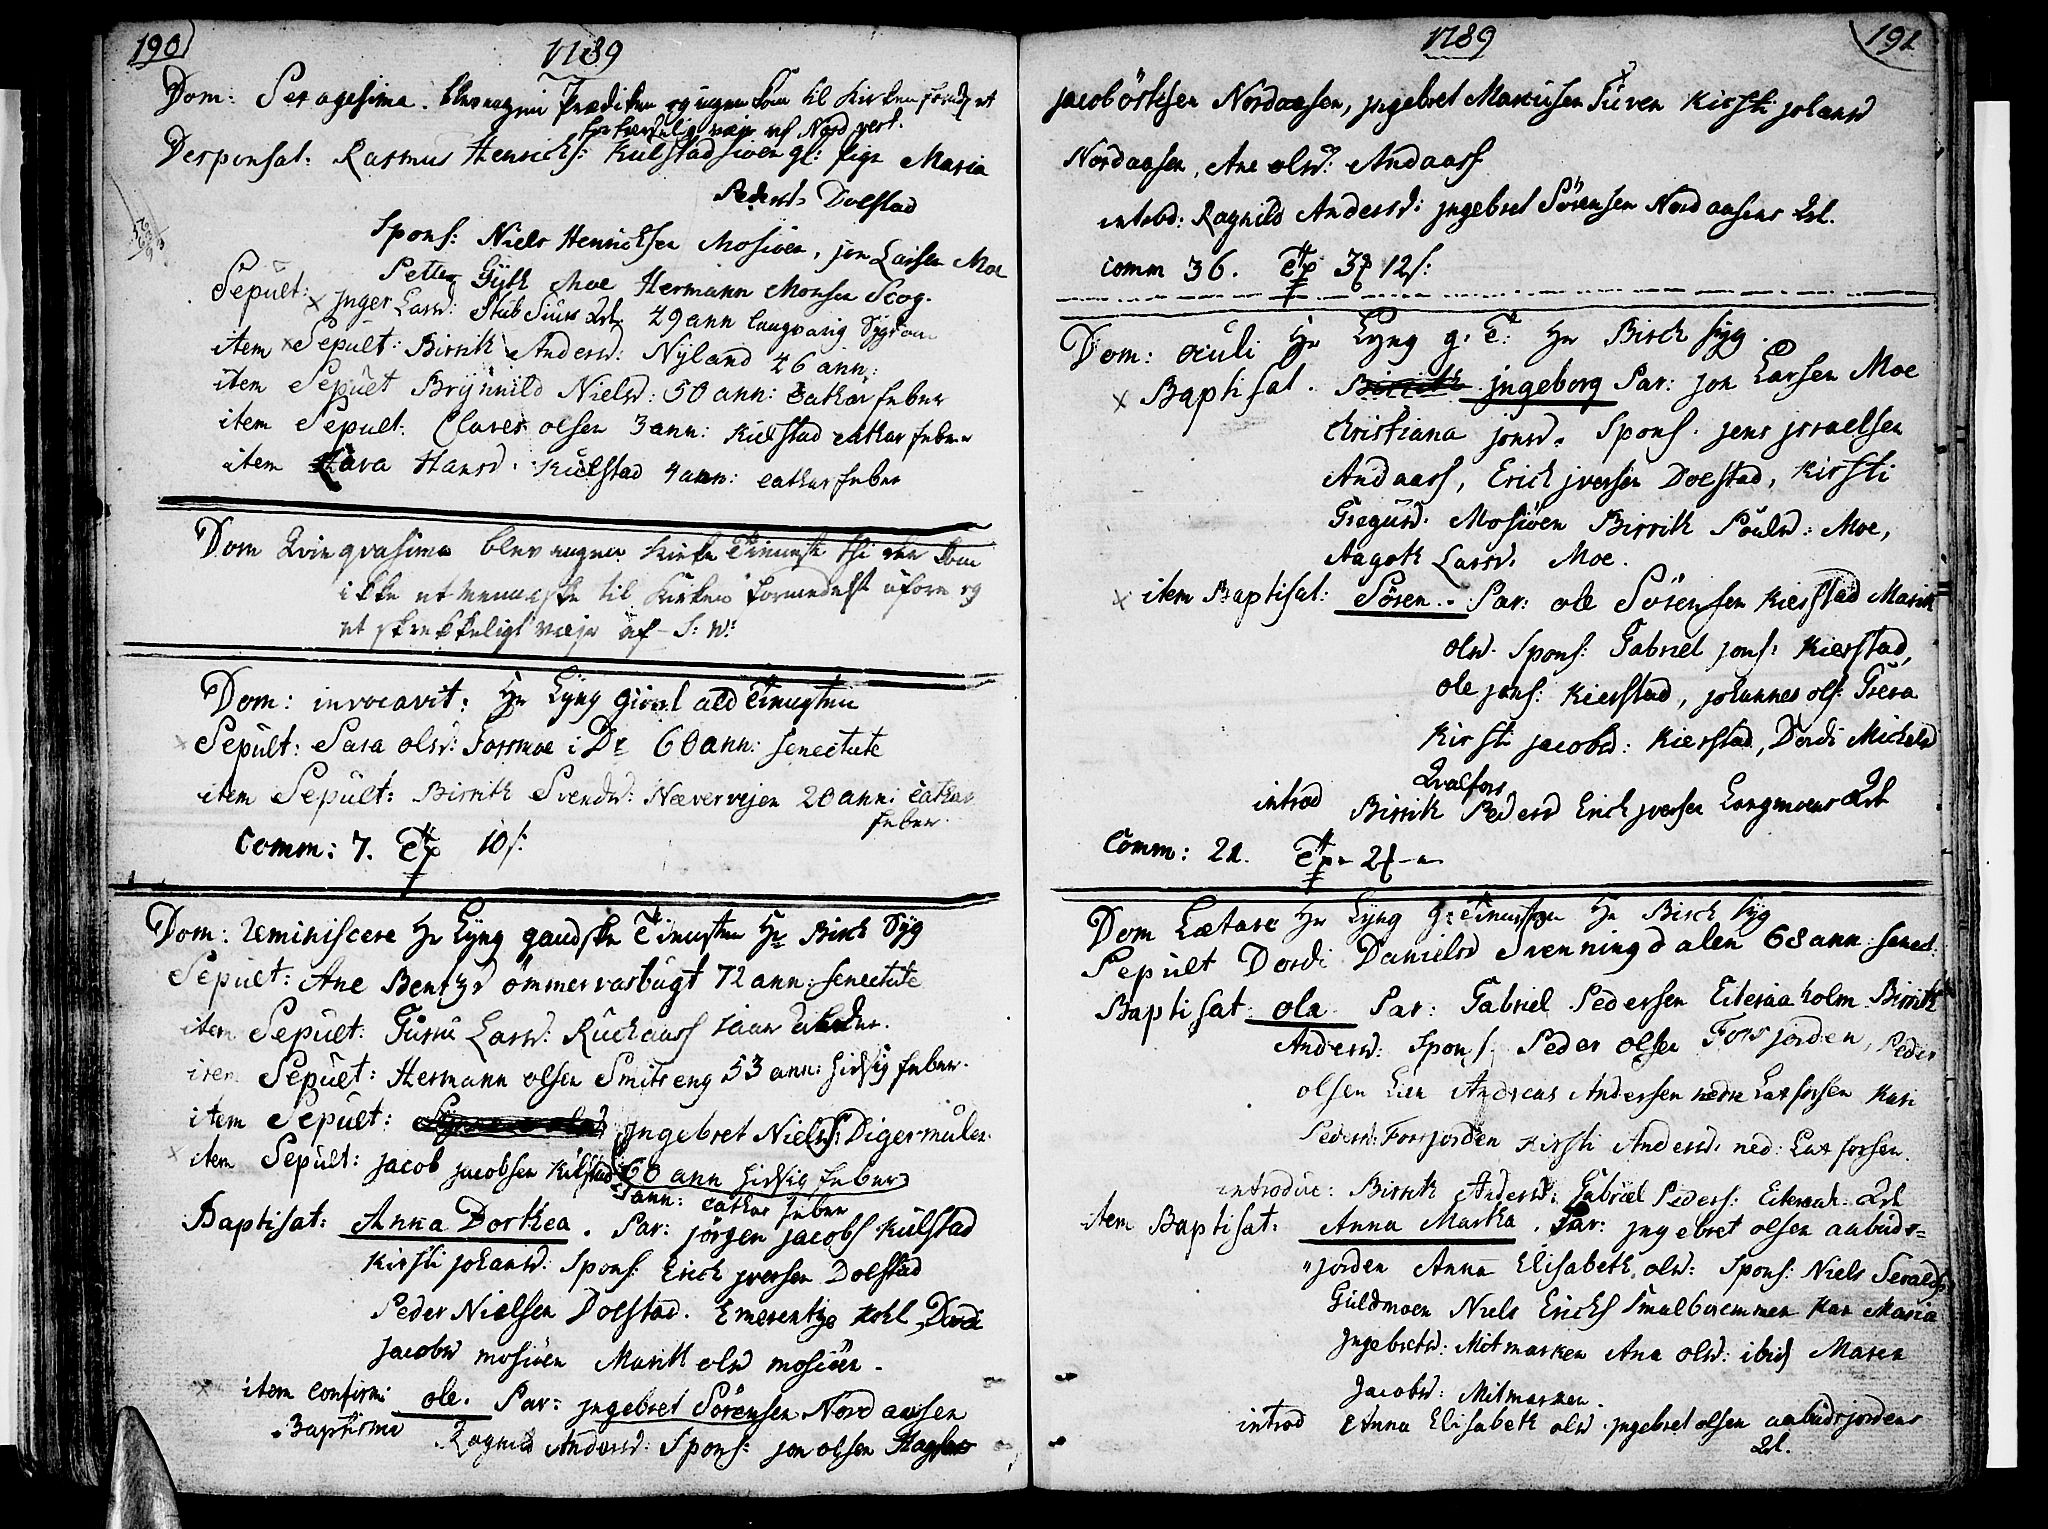 190
1789
Dom: Sexagesima. blev ingen Prædiken og ingen kom til Kirken formedelst et
forskrækkelig vejr af Nord vest.
Desponsat: Rasmus Henrichs: Kulstadsioen gl: pige Maria
Pedersd: Dolstad
Spons: Niels Henrichsen Mosiøen, jon Larsen Moe
Petter Gyth Moe Hermann Monsen Scog.
Sepult: jnger Larsd: Stub Siuus Qvl. 29 ann langvarig Sygdom
item Sepult: Birrith Andersd: Nyland 26 ann:
item Sepult Brynnild Nielsd: 50 ann: cathar feber
item Sepult: Clares olsen 3 ann: Kulstad cathar feber
item Sara Hansd. Kulstad 4 ann: cathar feber
Dom Qvinqvasima blev ingen Kirke Tieneste thi der kom
ikke et menneske til Kirken formedelst uføre og
et skrekkeligt vejr af S: W:
Dom: invocavit: Hr Lyng giorl ald Tienesten
Sepult: Sara olsd: Forsmoe i Dr 60 ann: senectute
item Sepult: Birrith Svendsd: Nævervejen 20 ann: Cathar
feber.
Comm: 7. 10 s:
Dom: Reminiscere Hr Lyng gandske Tienesten Hr Birch Syg
Sepult: Ane Bentzd ömmervasbugt 72 ann: senectute
item Sepult: Guru Larsd: Ruchaass
item Sepult: Hermann olsen Smitseng 53 ann: hidsig feber.
item Sepult: jngebret Niels: Digermulen.
item Sepult: jacob jacobsen Kulstad 60 ann hidsig feber
ann: cathar feber
Baptisat: Anna Dorthea. Par: jørgen jacobs Kulstad
Kirsti johansd: Spons: Erich jversen Dolstad
Peder Nielsen Dolstad. Emerentze Kohl, Dordi
jacobsd mosiøen Marith olsd mosiøen.
item confirm: ole. Par: jngebret Sörensen Nordaasen
Baptisme Ragnild Andersd: Spons: jon olsen
1789
191
jacob östesen Nordaasen, jngebret Marcusen Tuven Kirsti johansd
Nordaasen, Ane olsd: Andaass
introd: Ragnild Andersd: jngebret Sörensen Nordaasens Qvl.
comm 36. 12 s:
Dom: oculi Hr Lyng g: T: Hr Birch syg.
Baptisat. jngeborg Par: jon Larsen Moe
Christiana jonsd. Spons. jens jsraelsen
Andaass, Erich jversen Dolstad, Kirsti
Gregusd. Mosiøen Birrith Poulsd: Moe,
Aagoth Larsd. Moe.
item Baptisat: Sören. Par: ole Sörensen Kierstad Marith
olsd. Spons: Gabriel jons: Kierstad,
ole jons: Kierstad, johannes ols:
Kirsti jacobsd: Kierstad, Dordi Michelsd
Qvalfors
introd Birrith Pedersd Erich jversen Langmoens Qvl
Comm: 21.
Dom Lætare Hr Lyng g: Tienesten Hr Birch syg
Sepult Dordi Danielsd Svenningdalen 68 ann: senect:
Baptisat ola Par: Gabriel Pedersen Eiteraaholm Birrith
Andersd: Spons: Peder olsen Forsjorden, Peder
olsen Lien Andreas Andersen nedre Laxforsen Kari
Pedersd: Forsjorden Kirsti Andersd: ned: Laxforsen.
introduc: Birrith Andersd: Gabriel Peders: Eiteraah. Qvl
item Baptisat: Anna Martha. Par: jngebret olsen aabuds=
"jorden Anna Elisabeth. olsd: Spons: Niels
Guldmoen Niels Erichs Smalbremmen Kar Maria
jngebretsd: Mitmarken Ane olsd: ibid Maren
jacobsd: Mitmarken.
introd Anna Elisabeth olsd. jngebret olsen aabudsjordens
Qvl.